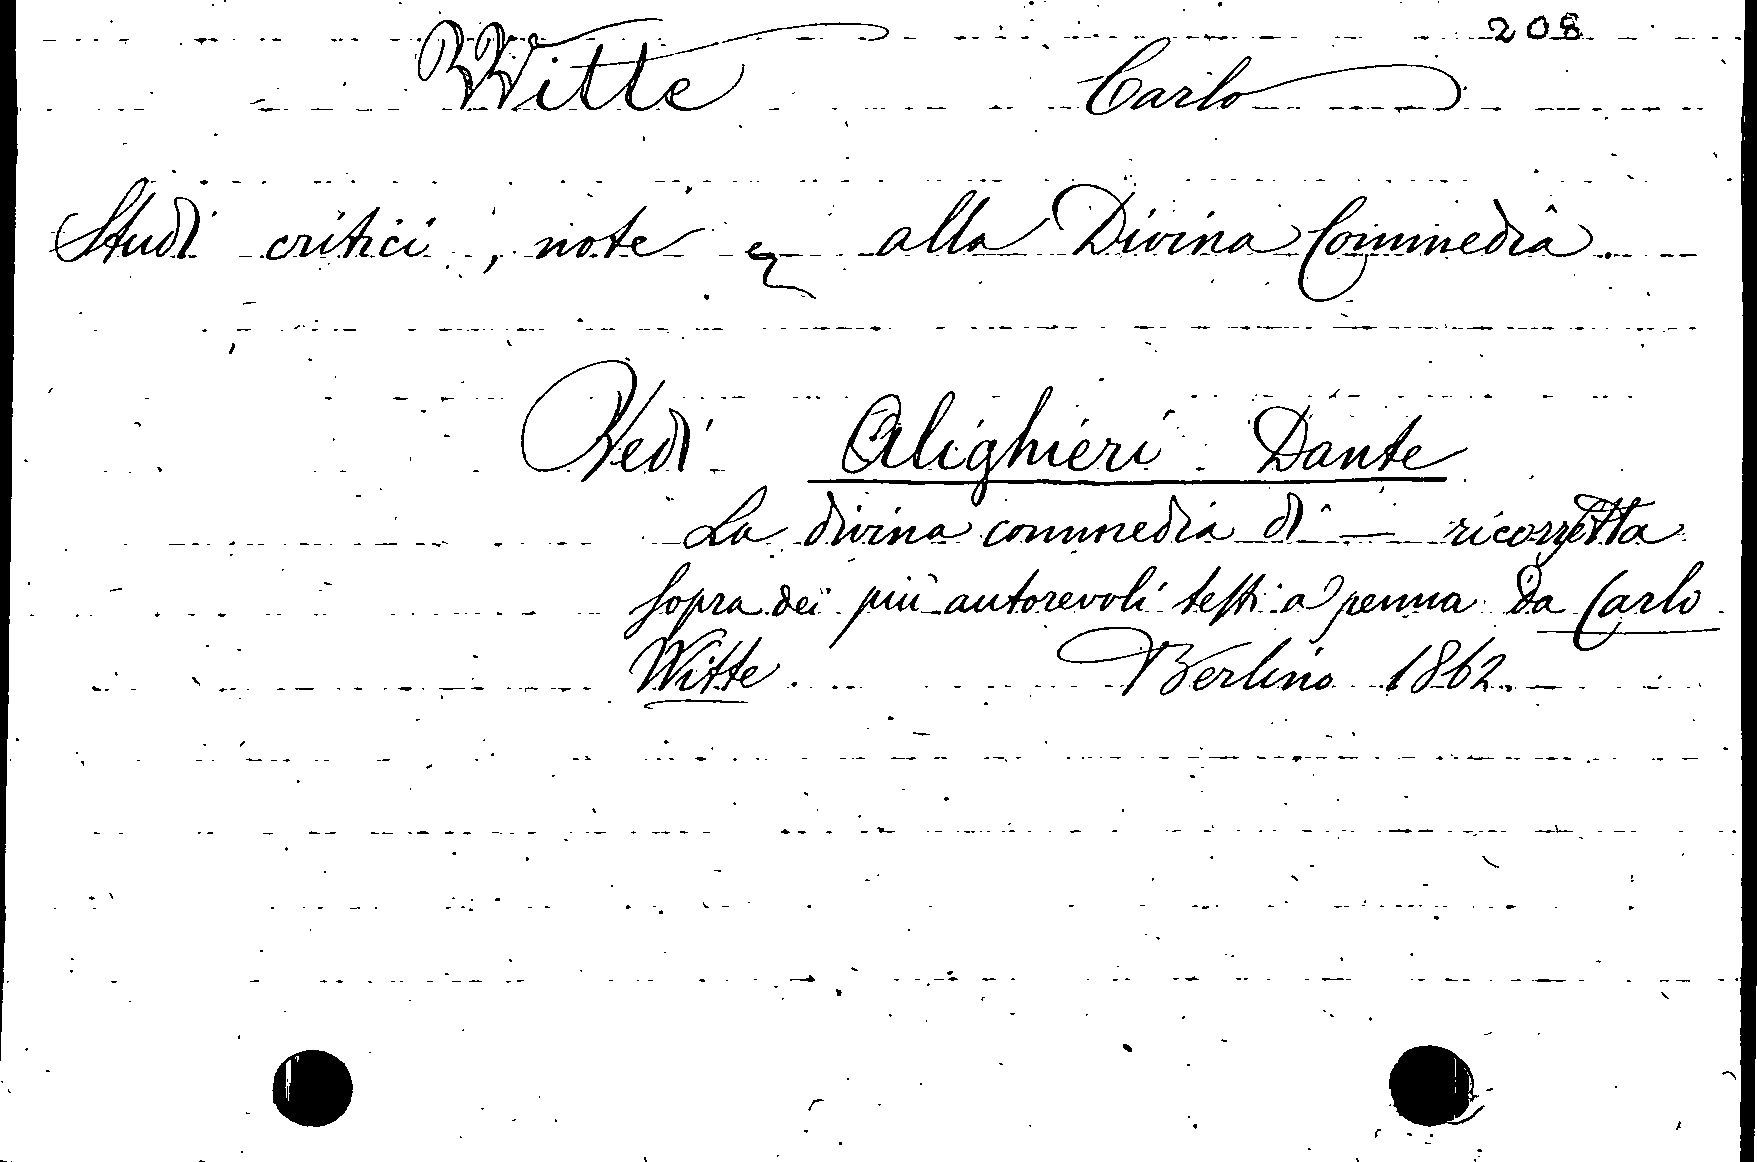 208
Witte Carlo
Studi critici, note alla Divina Commedia.
Vedi Alighieri Dante
La divina commedia di — ricorretta
sopra dei più autorevoli testi a penna da Carlo
Witte. Berlino 1862.